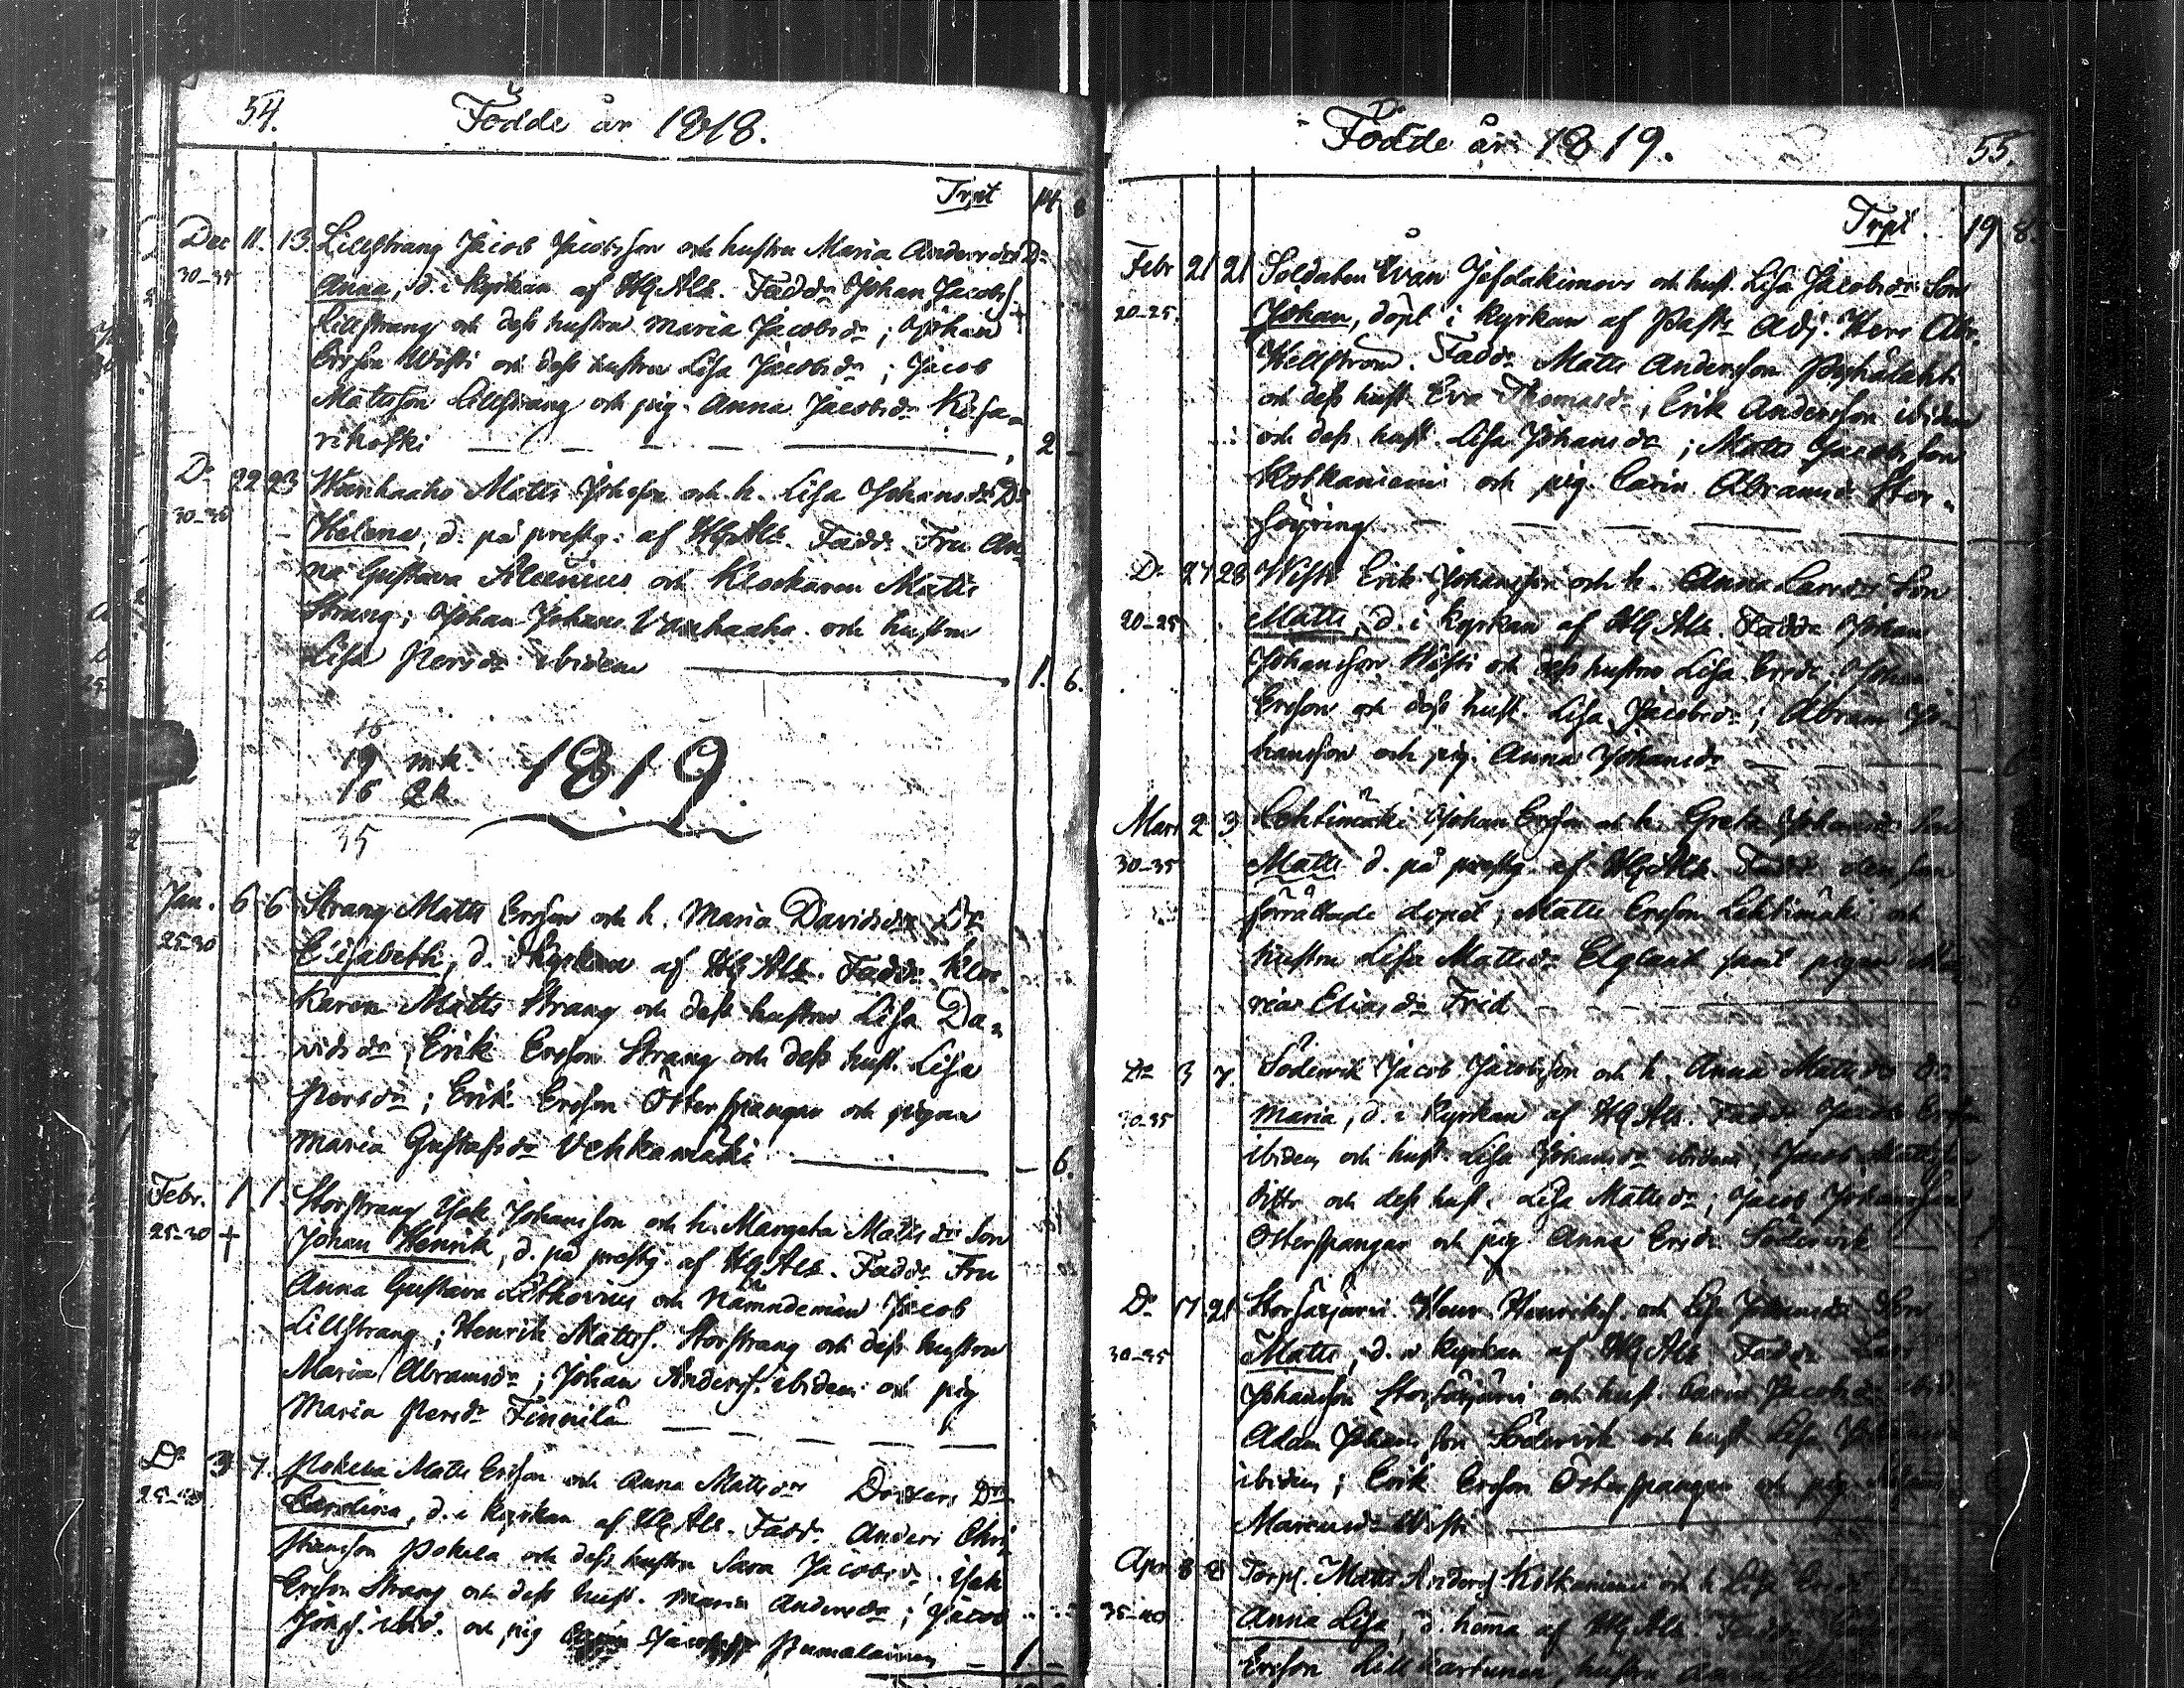 54. Födde år 1818.
Trpt 14. 8
Dec 11. 13. Lillstrang Jacob Jacobsson och hustru Maria Andersdr Dr
30-35 Anna, d. i kyrkan af HgAls. Fadd: Johan Jacobs.
Lillstrang och dess hustru Maria Jacobsdr; Johan
Ersson Wisti och dess hustru Lisa Jacobsdr; Jacob
Mattsson Lillstrang och pig. Anna Jacobsdr Kesa-
rikoski 2 -
Do 22 23 Wanhaaho Matts Johsson och h. Lisa Johansdr Dr
30-35 Helena, d. på prestg. af HgAls. Fadd: Fru An-
na Gustava och Klockaren Matts
Strang; Johan Johans. Vanhaaho och hustru
Lisa Persdr ibidem 1. 6.
16
19 mk. 1819.
16 qk
35
Jan. 6 6 Strang Matts Ersson och h. Maria Davidsdr Dr
25-30 Elisabeth, d. i kyrkan af HgAls. Fadd: Kloc-
karen Matts Strang och dess hustru Lisa Da-
vidsdr; Erik Ersson Strang och dess hust. Lisa
Persdr; Erik Ersson Otterspangar och pigan
Maria Gustafsdr Vehkamäki - 6.
Febr. 1 1. Storstrang Isak Johansson och h. Margeta Mattsdr Son
25-30 † Johan Henrik, d. på prestg. af HgAls. Fadd: Fru
Anna Gustava Lithovius och Nämndeman Jacob
Lillstrang; Henrik Mattss. Storstrang och dess hustru
Maria Abramsdr; Johan Anderss. ibidem och pig
Maria Persdr Finnilä
Do 3 7. Pokela Matts Ersson och Anna Mattsdr Dotter Dr
Carolina, d. i kyrkan af HgAls. Fadd: Anders Chri-
stiansson Pokela och dess hustru Sara Jacobsdr; Isak
Ersson Strang och dess hust. Maria Andersdr; Jacob
ibid. och pig Pumalainen - 1 -
Födde år 1819. 55.
Trpt. 19 8.
Febr 21 21 Soldaten Iwan Jefdakimovs och hust. Lisa Jacobsdr Son
20-25. Johan, döpt i kyrkan af Pastr Adj. Herr Abr.
Hellström. Fadd: Matts Andersson Pyhälahti
och dess hust. Eva Thomasdr; Erik Andersson ibidem
och dess hust. Lisa Johansdr; Matts Jacobsson
Kotkaniemi och pig. Carin Abramsdr Stor-
föyring
Do 27 28 Wisti Erik Johansson och h. Anna Larsdr Son
20-25 Matts, d. i kyrkan af HgAls. Fadd: Johan
Johansson Wisti och dess hustru Lisa Ersdr; Johan
Ersson och dess hust. Lisa Jacobsdr; Abram Jo-
hansson och pig. Anna Johansdr
Mars 2 3 Lehtimäki Johan Ersson och h. Greta Johansdr Son
30-35 Matts d. på prestg. af HgAls. Fadd: den som
förrättade dopet; Matts Ersson Lehtimäki och
hustru Lisa Mattsdr Elgland samt pigan Ma-
ria Eliasdr Frid
Do 3 7. Söderwik Jacob Jacobsson och h. Anna Mattsdr Dr
30-35 Maria, d. i kyrkan af HgAls. Fadd: Jacob Ersson
ibidem och hust. Lisa Johansdr ibidem; Jacob Mattsson
ditto och dess hust. Lisa Mattsdr; Jacob Johansson
Otterspangar och pig Anna Ersdr Söderwik
Do 17 21 Storsärjärvi Henr. Henrikss. och Lisa Johansdr Son
30-35 Matts, d. i kyrkan af HgAls. Fadd:
Johansson Storsärjärvi och hust. Carin Jacobsdr ibid.
Adam Johansson Söderwik och hust Lisa
ibidem; Erik Ersson Otterspangar och pig
Marcusdr Wisti
Apr. 8 8 Torp. Matts Anderss Kotkaniemi och h. Lisa Ersdr
35-40 Anna Lisa, d. hema af HgAls. Fadd:
Ersson Lill hustru Anna